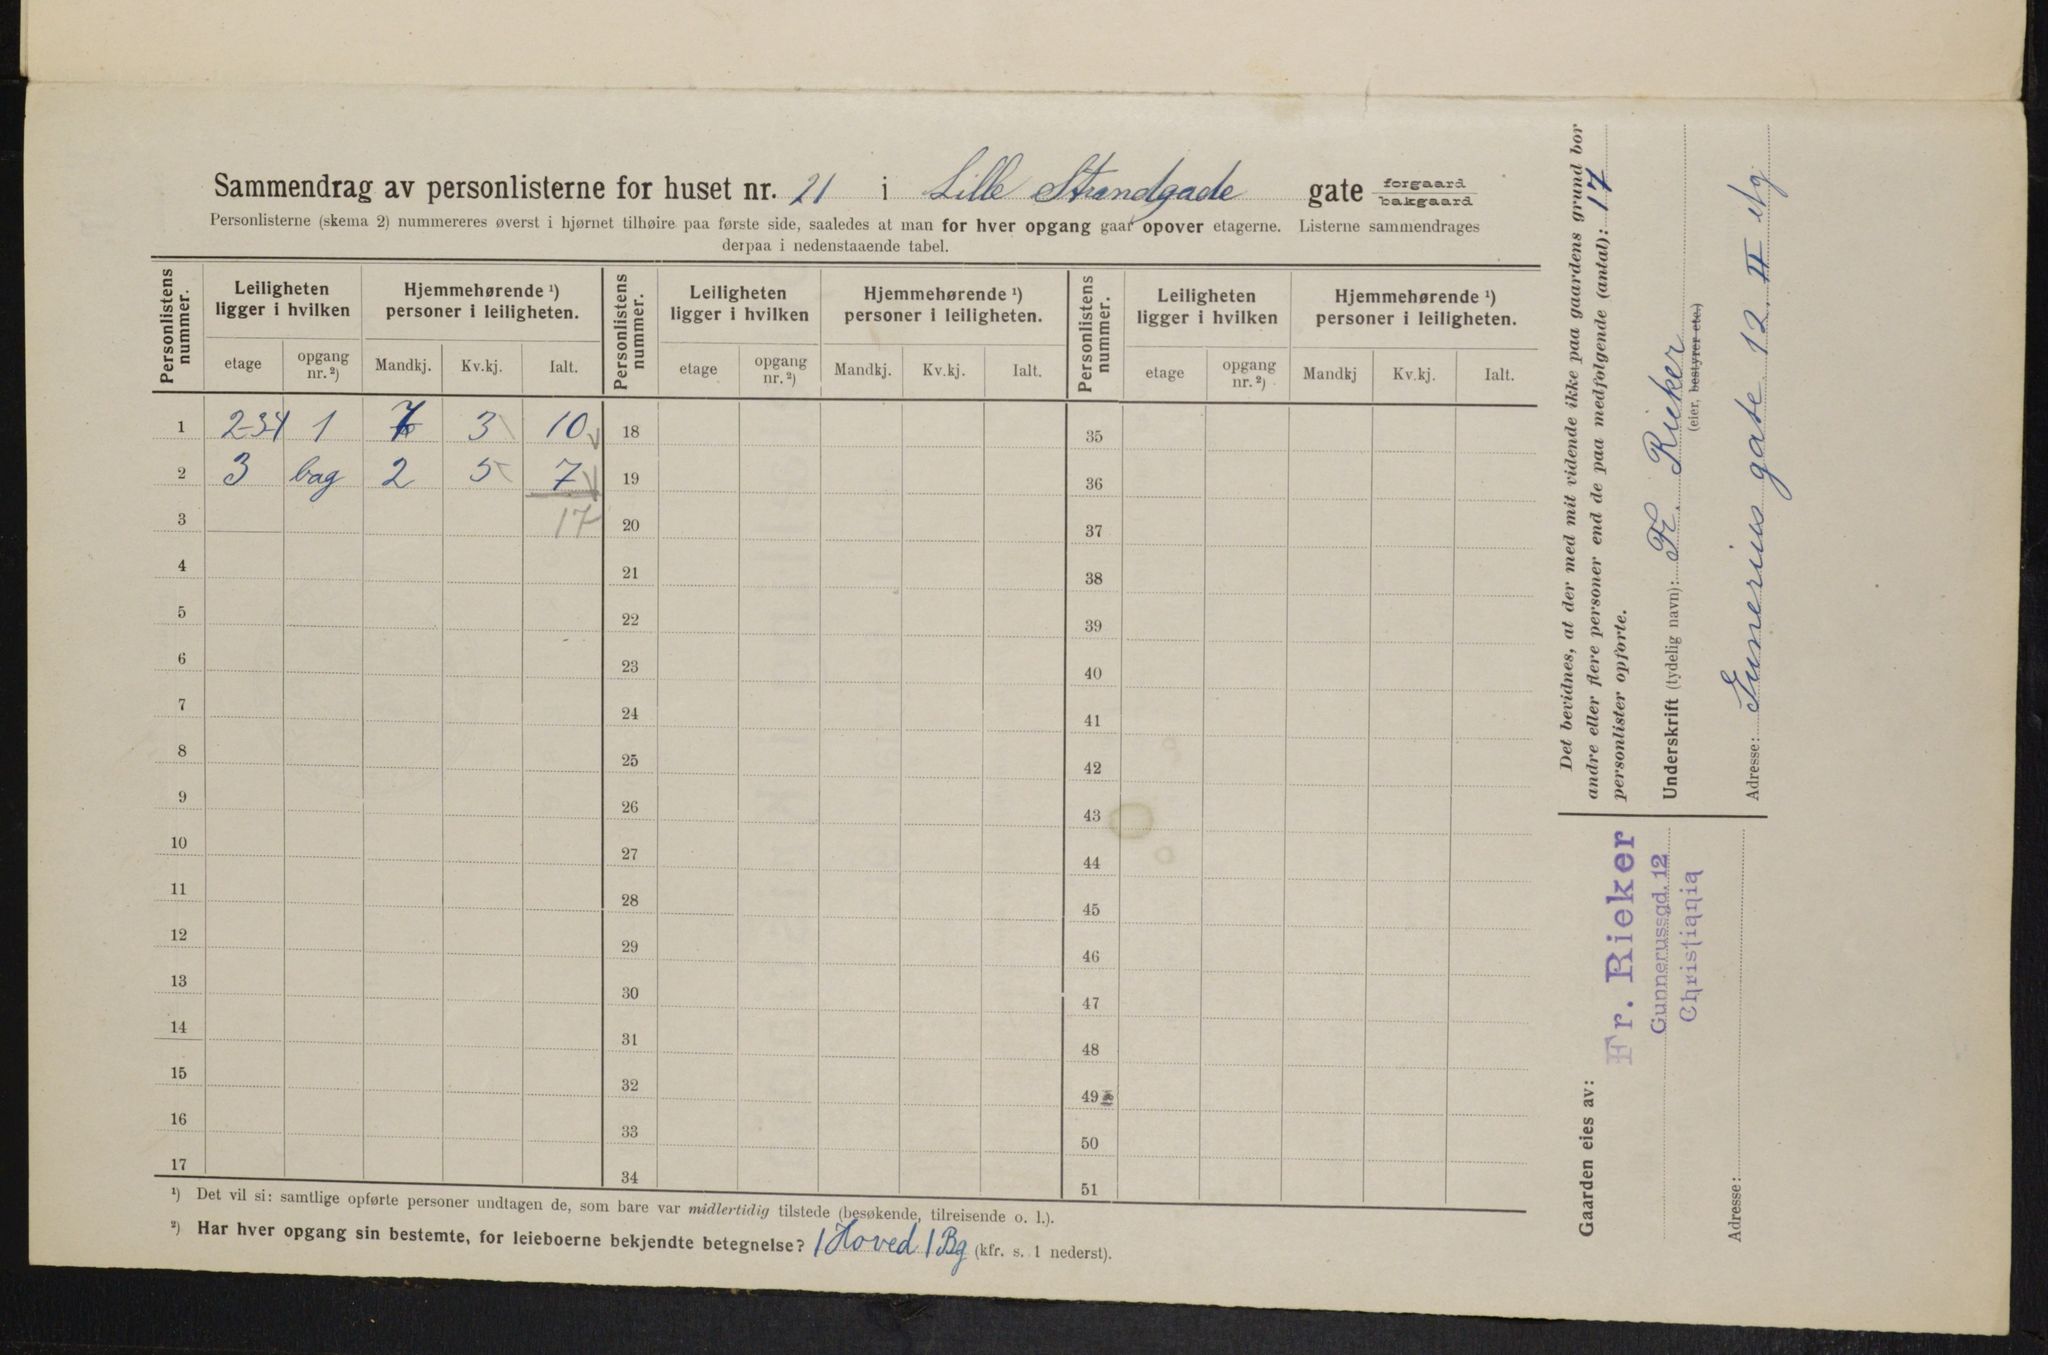 Sammendrag av personlisterne for huset nr. 21 i Lille Strandgade gate forgaard bakgaard
Personlisterne (skema 2) nummereres øverst i hjørnet tilhøire paa første side, saaledes at man for hver opgang gaar opover etagerne. Listerne sammendrages
derpaa i nedenstaaende tabel.
Personlistens nummer. Leiligheten ligger i hvilken Hjemmehørende ¹) personer i leiligheten. Personlistens nummer. Leiligheten ligger i hvilken Hjemmehørende ¹) personer i leiligheten. Personlistens nummer. Leiligheten ligger i hvilken Hjemmehørende ¹) personer i leiligheten.
etage opgang nr. ²) Mandkj. Kv.kj. Ialt. etage opgang nr. ²) Mandkj. Kv.kj. Ialt. etage opgang nr. ²) Mandkj Kv.kj. Ialt.
1 2-3-4 1 7 3 10 18 35
2 3 bag 2 5 7 19 36
3 17 20 37
4 21 38
5 22 39
6 23 40
7 24 41
8 25 42
9 26 43
10 27 44
11 28 45
12 29 46
13 30 47
14 31 48
15 32 49
16 33 50
17 34 51
¹) Det vil si: samtlige opførte personer undtagen de, som bare var midlertidig tilstede (besøkende, tilreisende o. l.).
²) Har hver opgang sin bestemte, for leieboerne bekjendte betegnelse? 1 Hoved 1 Bg (kfr. s. 1 nederst).
Det bevidnes, at der med mit vidende ikke paa gaardens grund bor
andre eller flere personer end de paa medfølgende (antal): 17
personlister opførte.
Underskrift (tydelig navn): Fr. Rieker
(eier, bestyrer etc.)
Adresse: Gunnerius gate 12 II etg
Gaarden eies av:
Fr. Rieker
Gunnerussgd. 12
Christiania
Adresse: